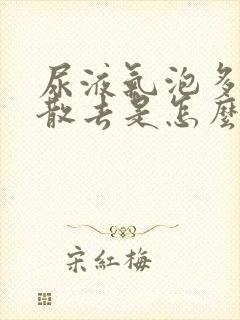 尿液氣泡多
散去是怎麼
宋紅梅